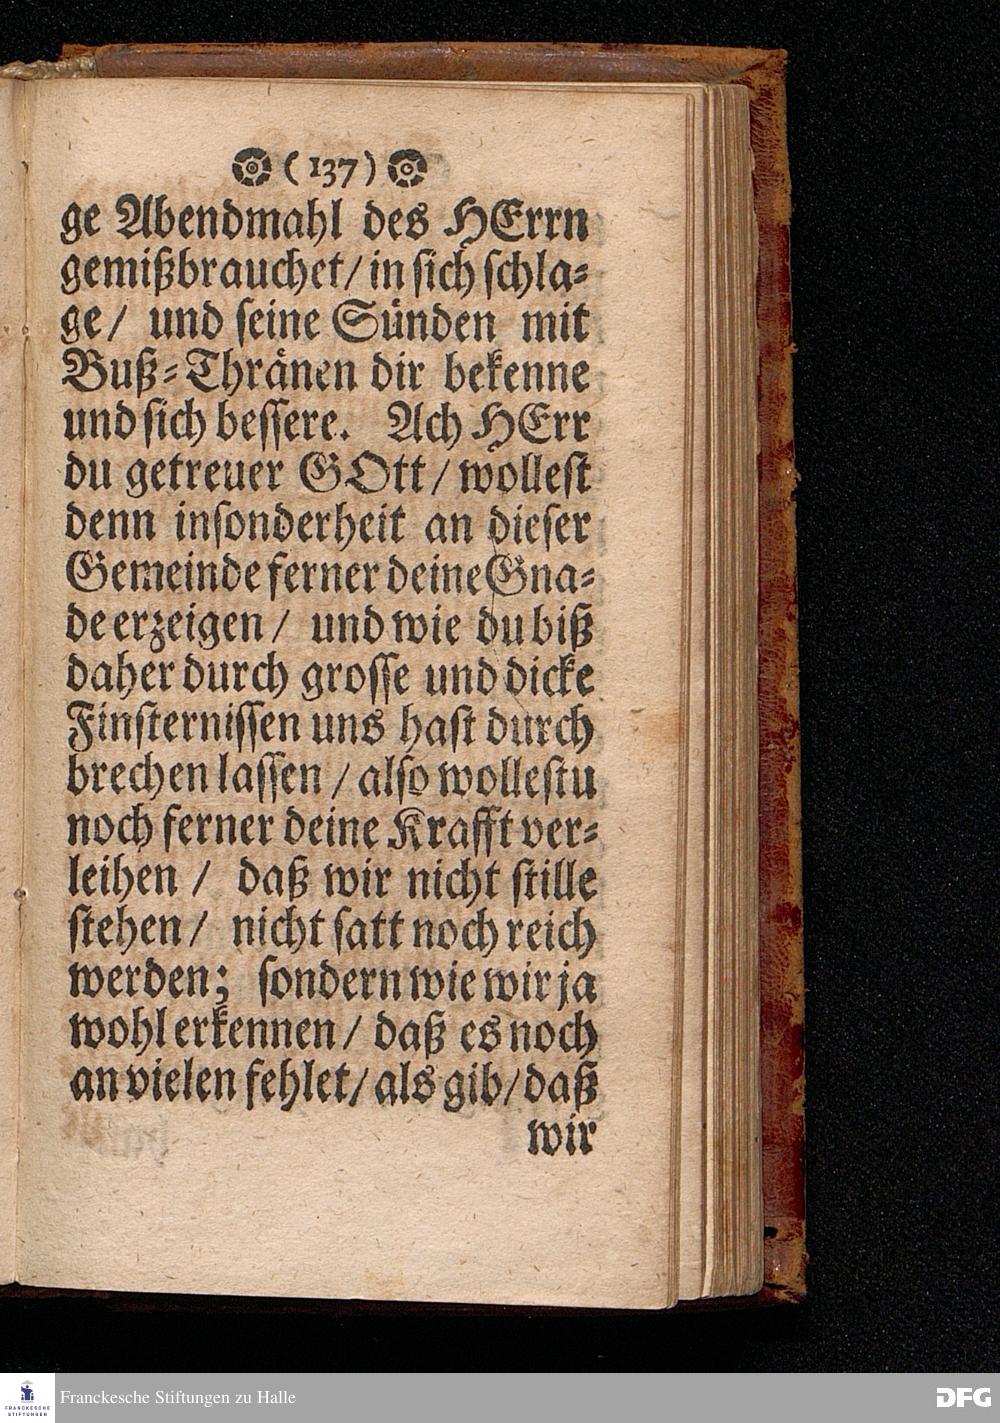 ( 137 )
ge Abendmahl des HErrn
gemißbrauchet/ in sich schla-
ge/ und seine Sünden mit
Buß-Thränen dir bekenne
und sich bessere. Ach HErr
du getreuer GOtt/ wollest
denn insonderheit an dieser
Gemeinde ferner deine Gna-
de erzeigen/ und wie du biß
daher durch grosse und dicke
Finsternissen uns hast durch
brechen lassen/ also wollestu
noch ferner deine Krafft ver-
leihen/ daß wir nicht stille
stehen/ nicht satt noch reich
werden; sondern wie wir ja
wohl erkennen/ daß es noch
an vielen fehlet/ als gib/ daß
wir
FRANCKESCHE
STIFTUNGEN
Franckesche Stiftungen zu Halle
DFG